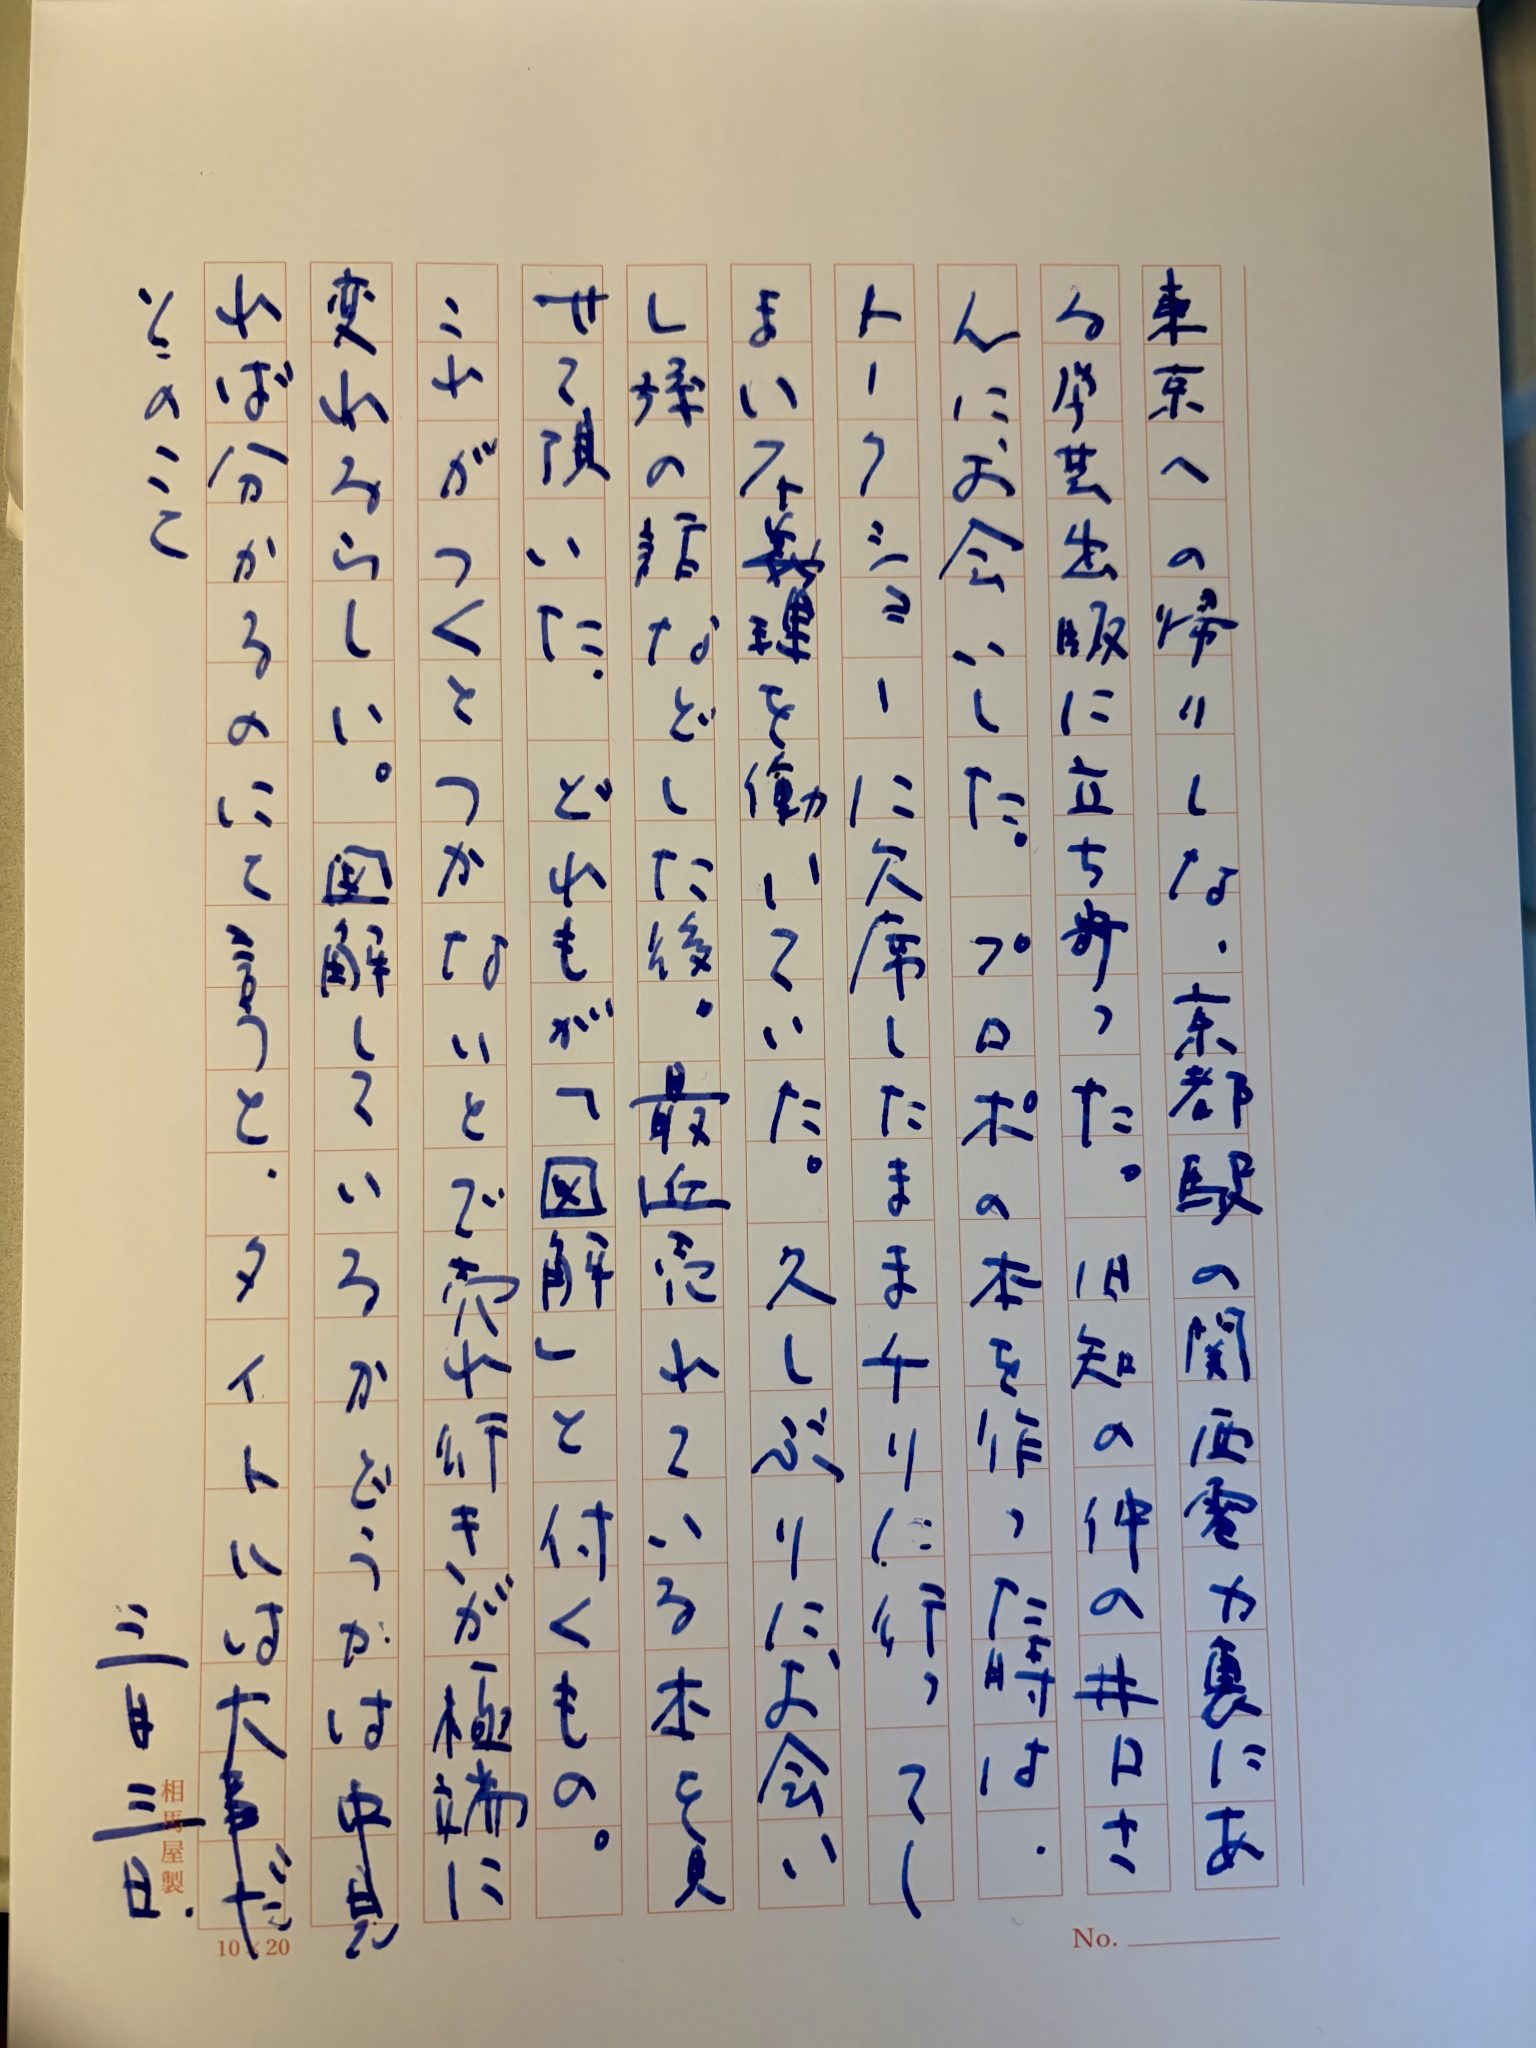 東京への帰りしな、京都駅の関西電力裏にあ
る学芸出版に立ち寄った。旧知の仲の井口さ
んにお会いした。プロポの本を作った時は、
トークショーに欠席したままチリに行ってし
まい不義理を働いていた。久しぶりにお会い
し孫の話などした後、最近売れている本を見
せて頂いた。どれもが「図解」と付くもの。
これがつくとつかないとで売れ行きが極端に
変わるらしい。図解しているかどうかは中見
れば分かるのにて言うと、タイトルは大事だ
そのこと
二月三日.
相馬屋製
10×20
No.